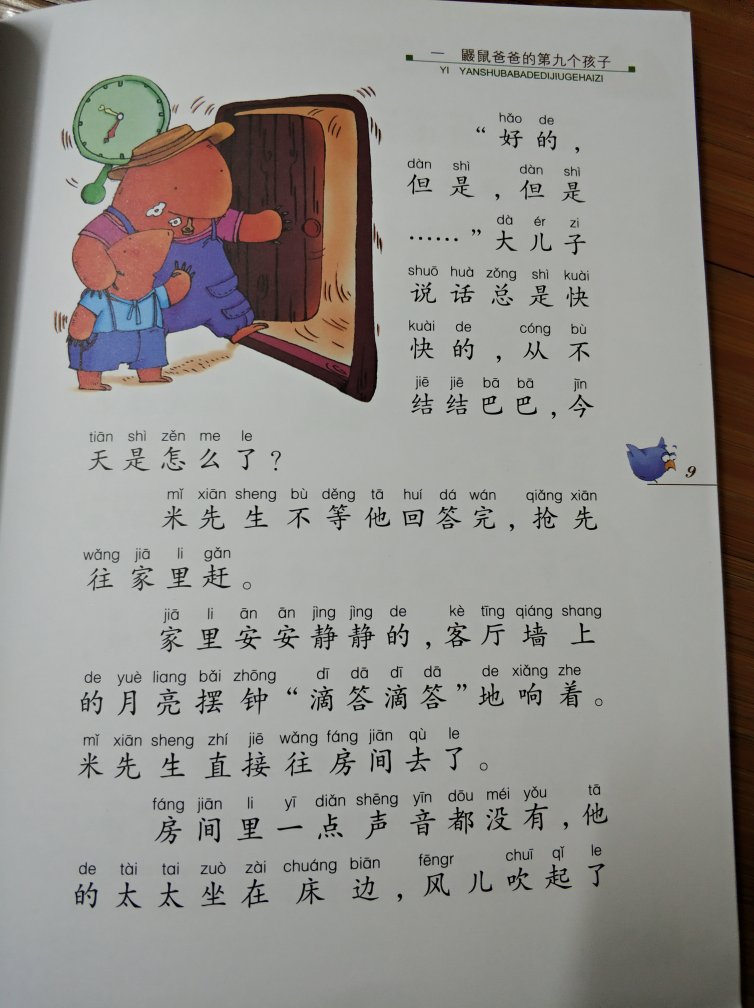 一 鼹鼠爸爸的第九个孩子
YI YANSHUBABADEDIJIUGEHAIZI
hǎo de
“好的，
dàn shì dàn shì
但是，但是
dà ér zi
……”大儿子
shuō huà zǒng shì kuài
说话总是快
kuài de cóng bù
快的，从不
jiē jiē bā bā jīn
结结巴巴，今
tiān shì zěn me le
天是怎么了？
mǐ xiān sheng bù děng tā huí dá wán qiǎng xiān
米先生不等他回答完，抢先
wǎng jiā li gǎn
往家里赶。
jiā li ān ān jìng jìng de kè tīng qiáng shang
家里安安静静的，客厅墙上
de yuè liang bǎi zhōng dī dā dī dā de xiǎng zhe
的月亮摆钟“滴答滴答”地响着。
mǐ xiān sheng zhí jiē wǎng fáng jiān qù le
米先生直接往房间去了。
fáng jiān li yī diǎn shēng yīn dōu méi yǒu tā
房间里一点声音都没有，他
de tài tai zuò zài chuáng biān fēngr chuī qǐ le
的太太坐在床边，风儿吹起了
9